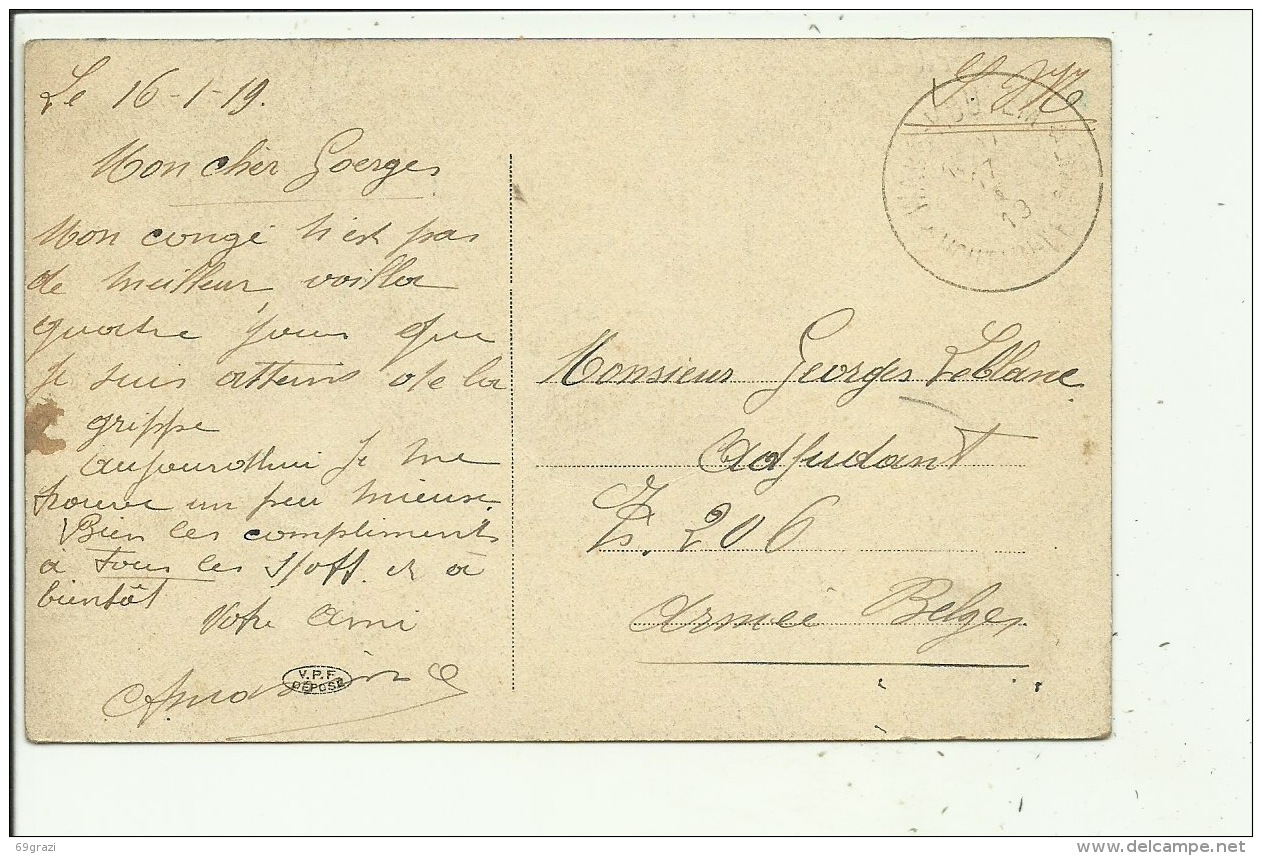 Le 16-1-19.
S. M.
Mon cher Goerges
Mon congé n'est pas
de meilleur, voilla
quatre jours que
je suis atteins de la
grippe
aujourdhui je me
trouve un peu mieuse.
Bien les compliments
à tous les s/off. et à
bientôt
Votre ami
V.P.F.
DÉPOSÉ
Monsieur Georges Leblanc
Adjudant
Z. 206
Armée Belge
69grazi
www.delcampe.net